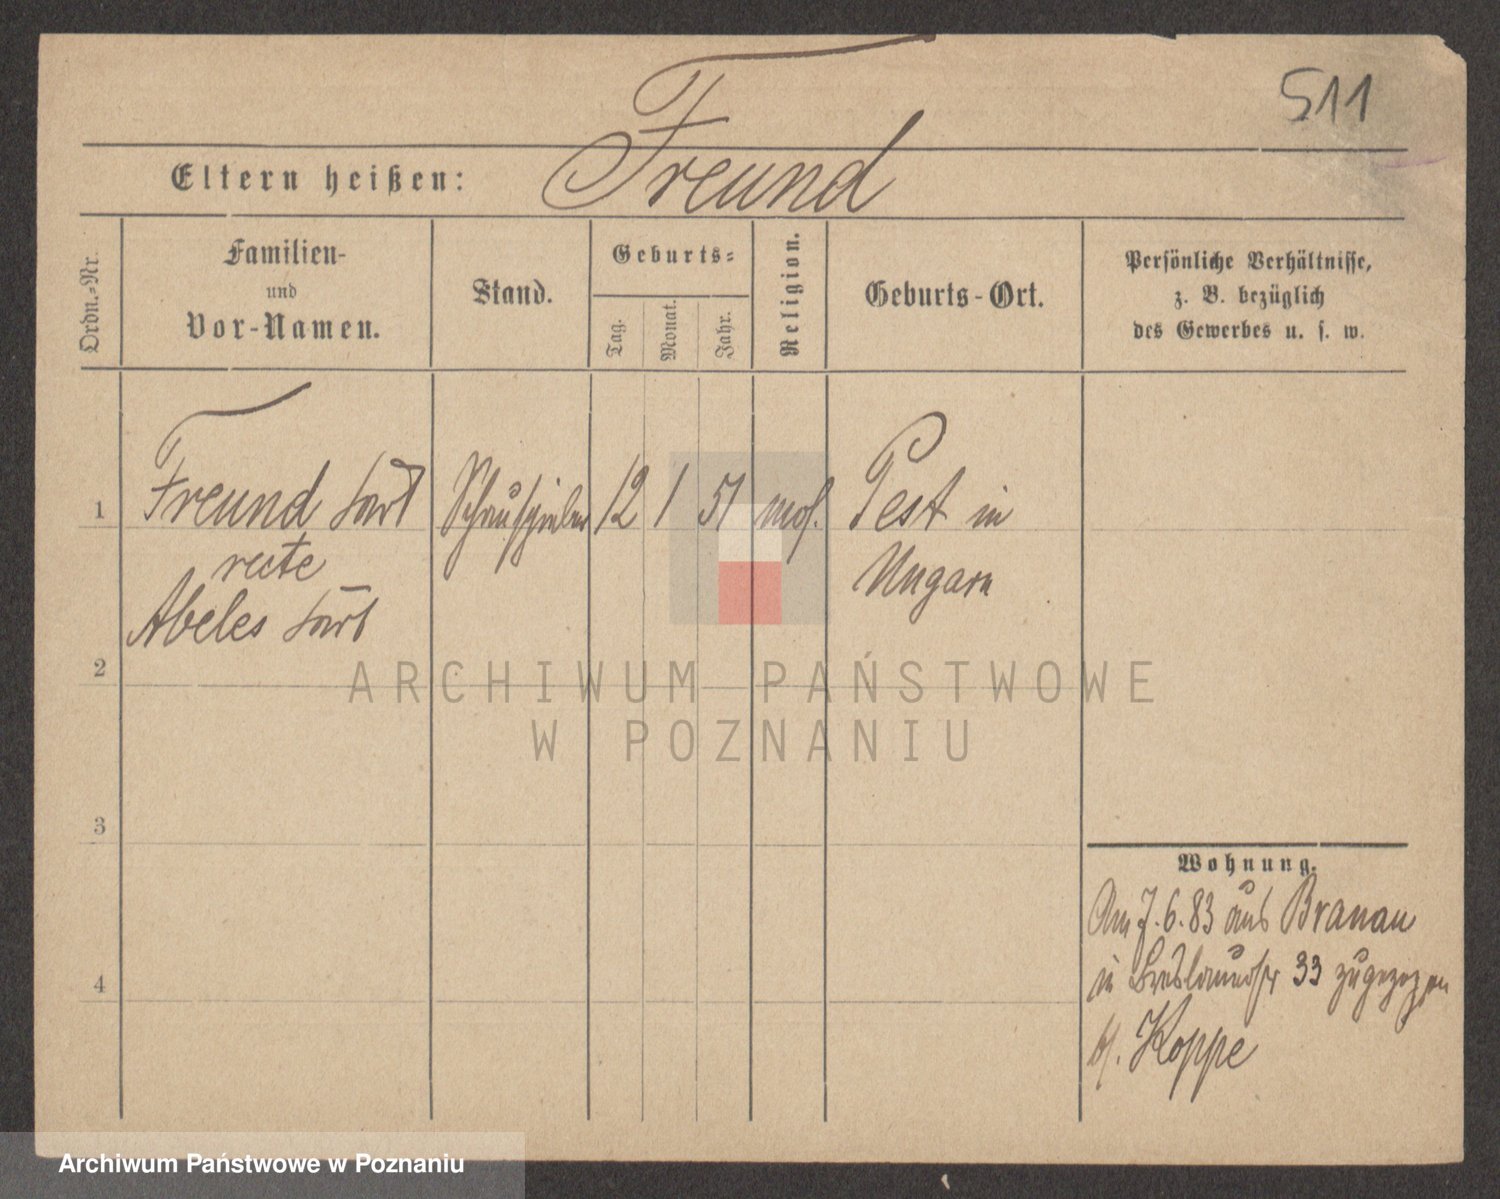 511
Eltern heißen: Freund
Ordn.-Nr.
Familien-
und
Vor-Namen.
Stand.
Geburts-
Tag.
Monat.
Jahr.
Religion.
Geburts-Ort.
Persönliche Verhältnisse,
z. B. bezüglich
des Gewerbes u. s. w.
1
Freund
Schauspieler
12 1 51 mos. Pest in
Ungarn
recte
Abeles
2
3
4
ARCHIWUM PAŃSTWOWE
W POZNANIU
Wohnung.
Am 7.6.83 aus Branau
in 33 zugezogen
b/. Koppe
Archiwum Państwowe w Poznaniu